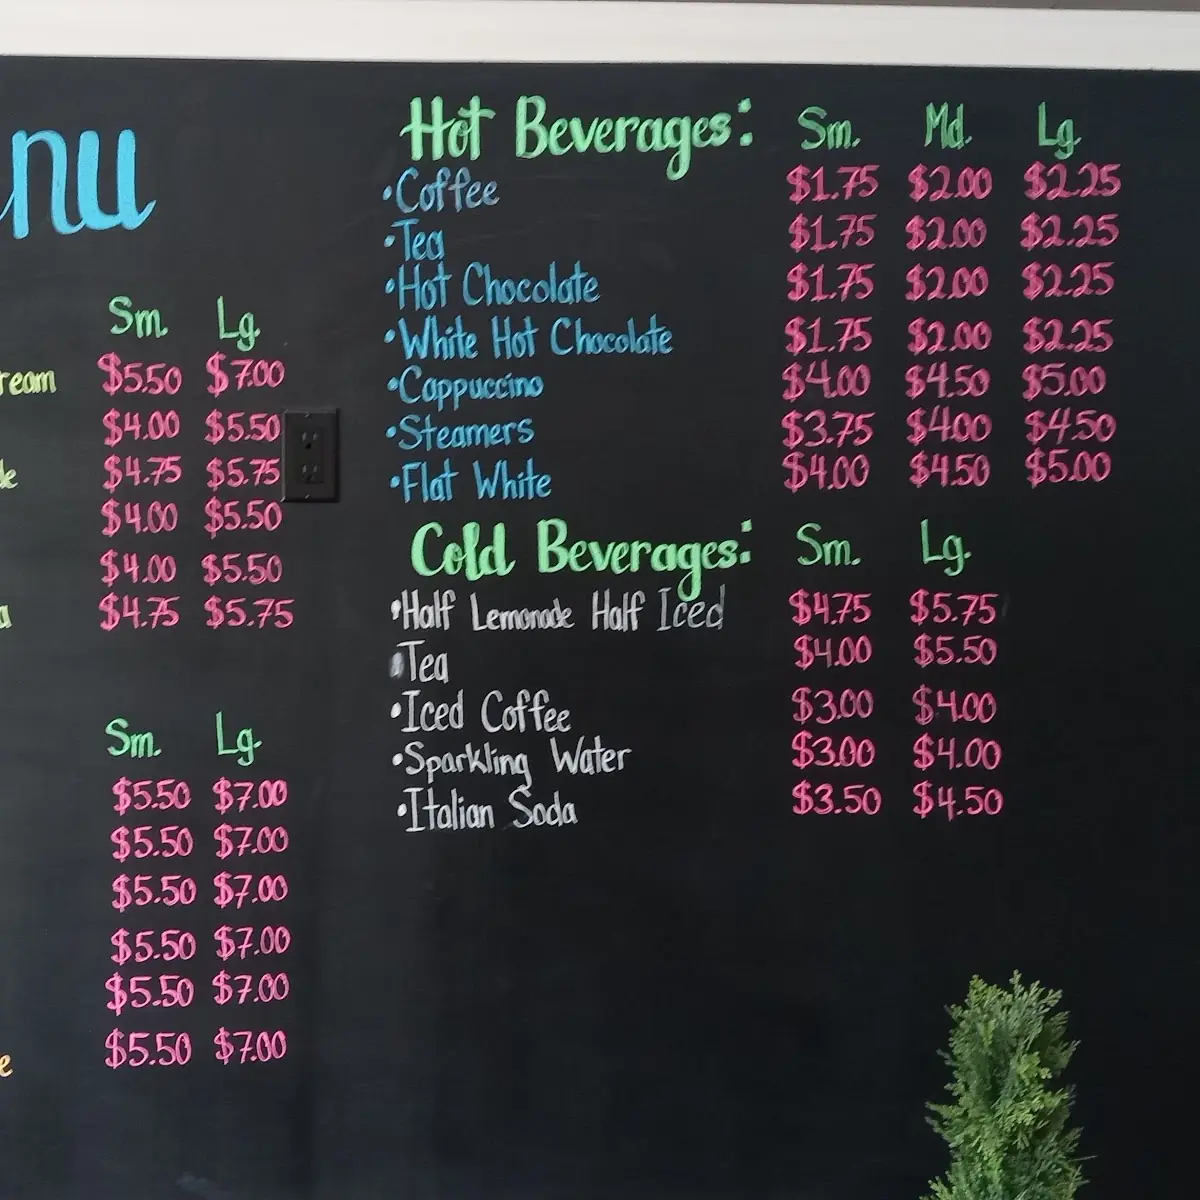 nu
Sm. Lg.
ream $5.50 $7.00
$4.00 $5.50
de $4.75 $5.75
$4.00 $5.50
$4.00 $5.50
a $4.75 $5.75
Sm. Lg.
$5.50 $7.00
$5.50 $7.00
$5.50 $7.00
$5.50 $7.00
$5.50 $7.00
e $5.50 $7.00
Hot Beverages: Sm. Md. Lg.
•Coffee $1.75 $2.00 $2.25
•Tea $1.75 $2.00 $2.25
•Hot Chocolate $1.75 $2.00 $2.25
•White Hot Chocolate $1.75 $2.00 $2.25
•Cappuccino $4.00 $4.50 $5.00
•Steamers $3.75 $4.00 $4.50
•Flat White $4.00 $4.50 $5.00
Cold Beverages: Sm. Lg.
•Half Lemonade Half Iced $4.75 $5.75
•Tea $4.00 $5.50
•Iced Coffee $3.00 $4.00
•Sparkling Water $3.00 $4.00
•Italian Soda $3.50 $4.50